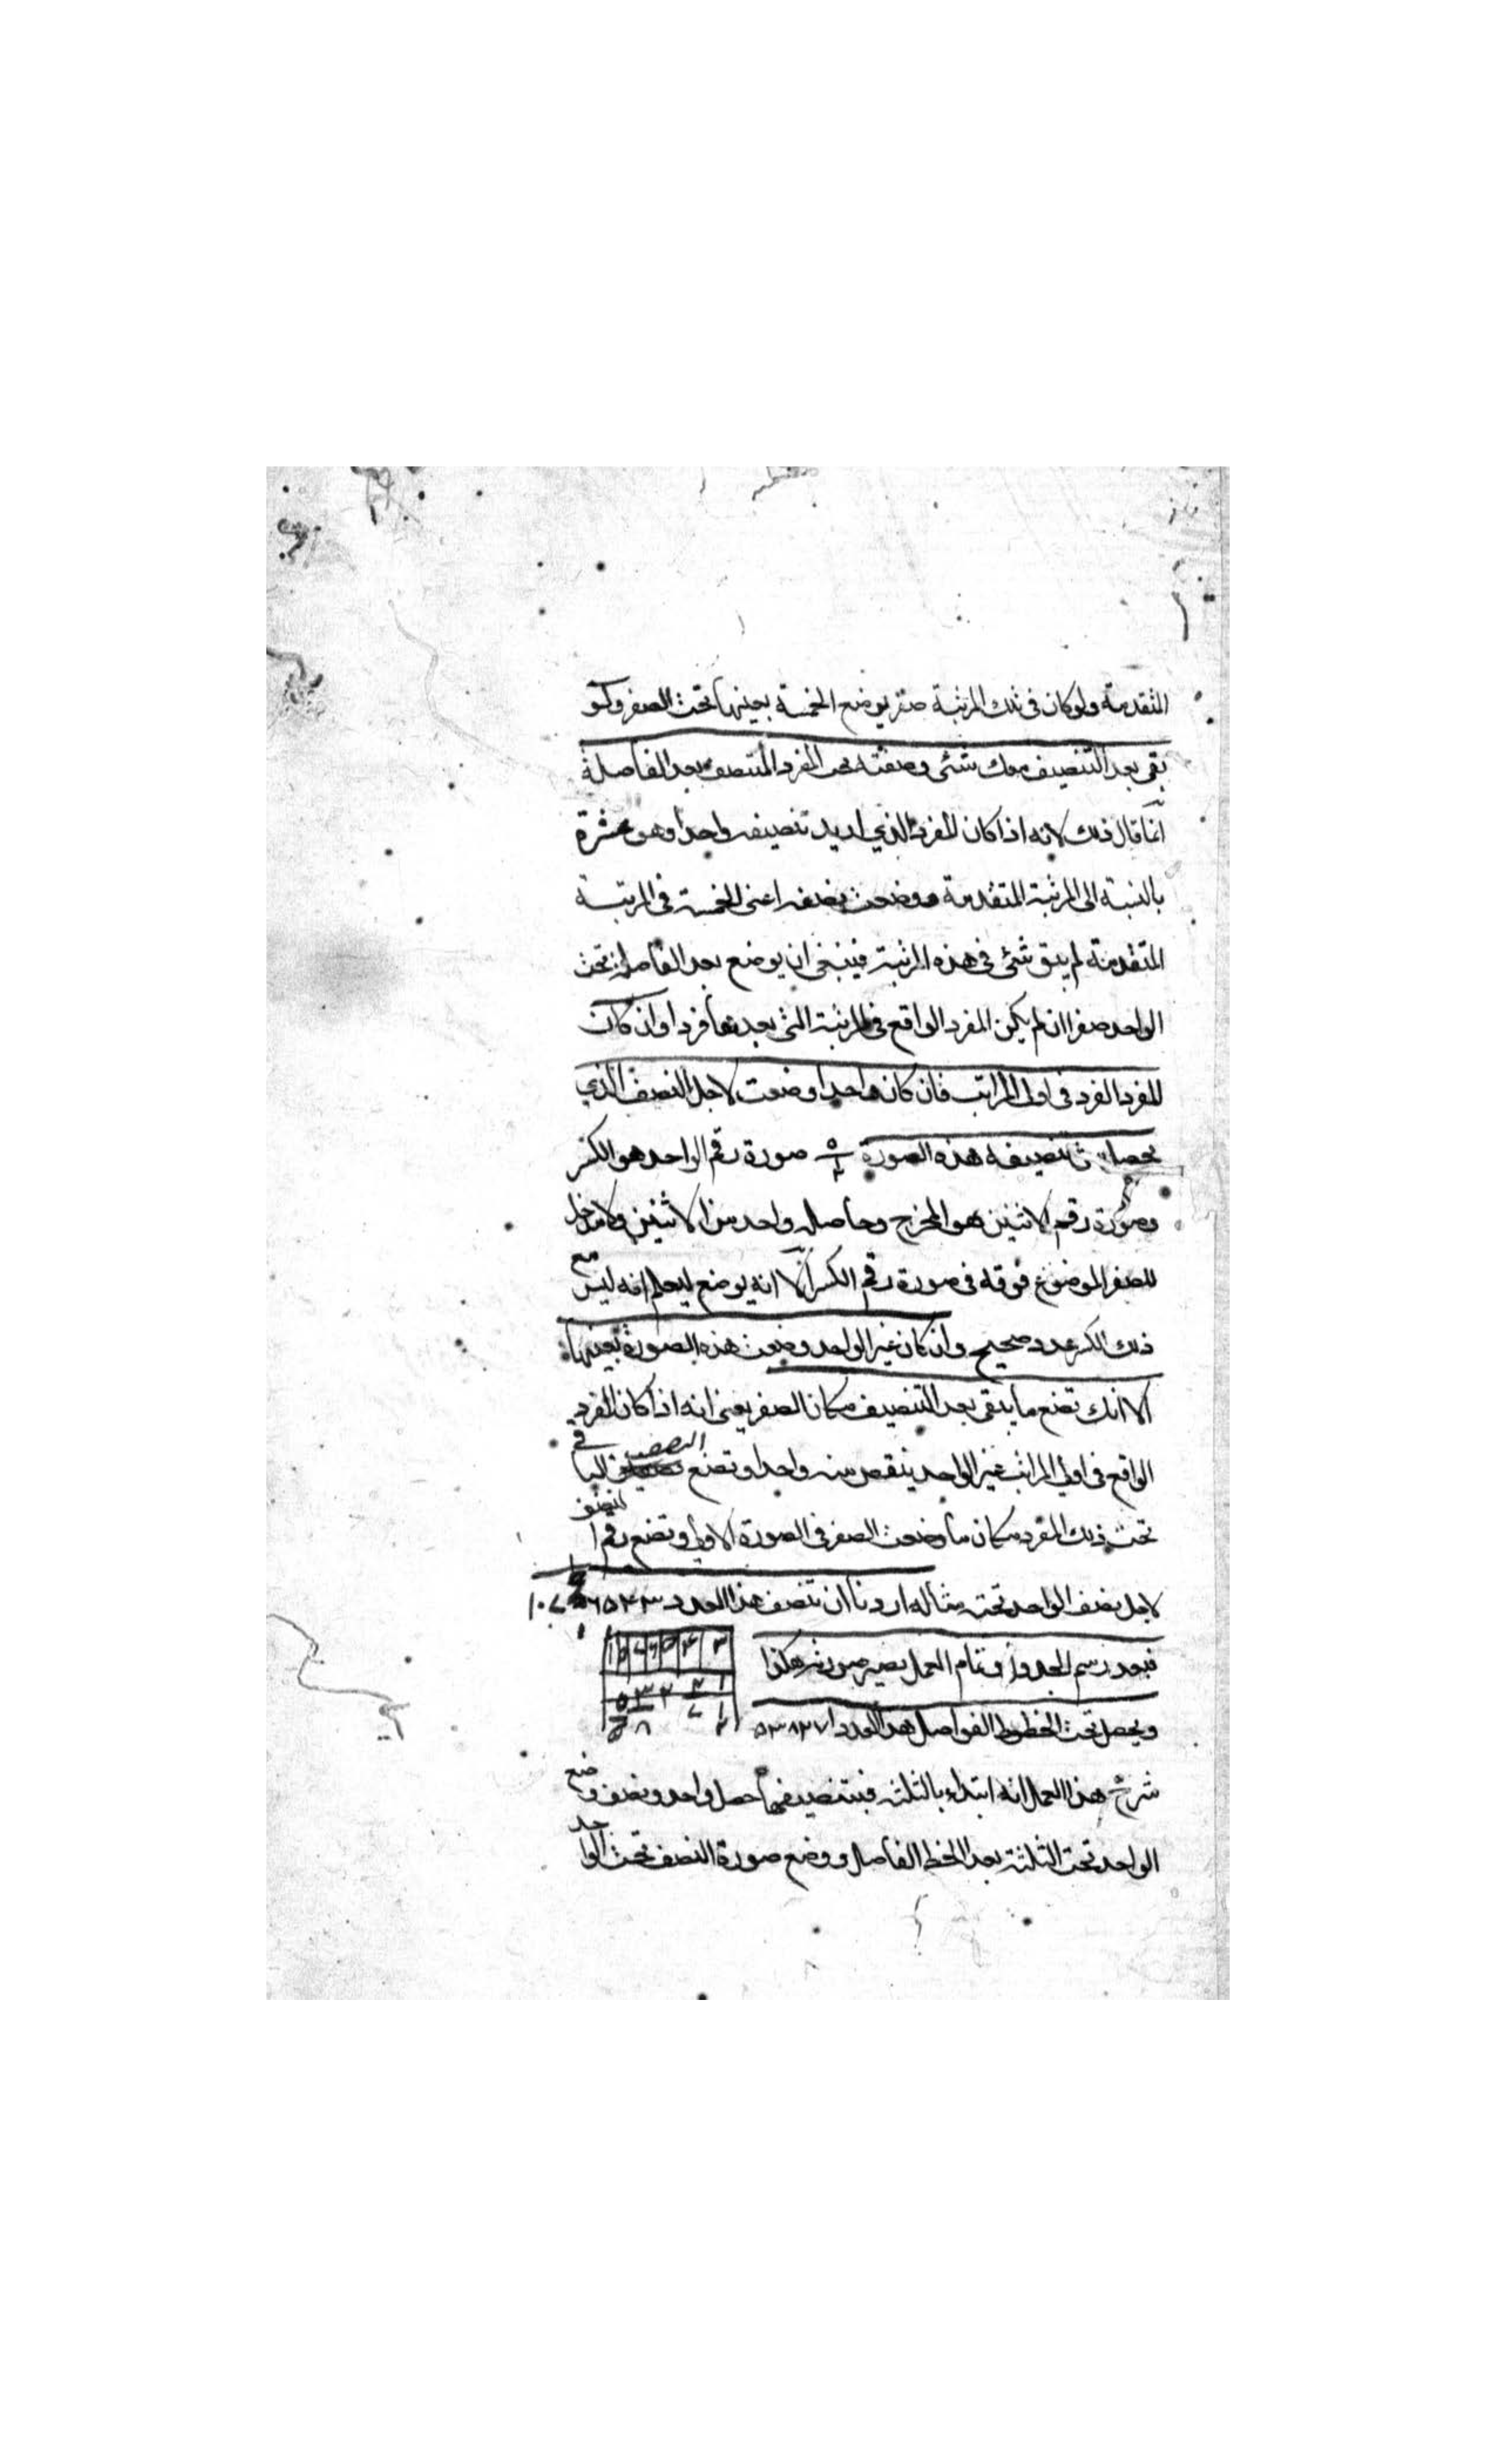 المتقدمة ولو كان فى تلك المرتبة صفر يوضع الخمسة بعينها تحت الصفر ولو
بقى بعد التنصيف معك شئ وضعته تحت المفرد المنتصف بعد الفاصلة
انما قال ذلك لانه اذا كان المفرد الذي اريد تنصيفه واحدا وهو عشرة
بالنسبة الى المرتبة المتقدمة ووضعت نصفه اعنى الخمسة فى المرتبة
المتقدمة لم يبق شئ فى هذه المرتبة فينبغى ان يوضع بعد الفاصلة تحت
الواحد صفرا ان لم يكن المفرد الواقع فى المرتبة التى بعدها فردا وان كان
المفرد الفرد فى اولى المراتب فان كان واحدا وضعت لاجل النصف الذي
يحصل من تنصيفه هذه الصورة صورة رقم الواحد هو الكسر
وصورة رقم الاثنين هو المخرج وحاصله واحد من الاثنين ولا مدخل
للصفر الموضوع فوقه فى صورة رقم الكسر الا انه يوضع ليعلم انه ليس مع
ذلك الكسر عدد صحيح وان كان غير الواحد وضعت هذه الصورة بعينها
الا انك تضع ما يبقى بعد التنصيف مكان الصفر يعنى انه اذا كان المفرد
الواقع فى اولى المراتب غير الواحد ينقص منه واحد وتضع النصف
تحت ذلك المفرد مكان ما وضعت الصفر فى الصورة الاولى وتضع رقم النصف
لاجل نصف الواحد تحته مثاله اردنا ان ننصف هذا العدد
فبعد رسم الجدول وتمام العمل يصير صورته هكذا
ويحصل تحت الخطوط الفواصل هذا العدد ٥٣٨٢٧١
شرح هذا العمل انه ابتداء بالثلثة فبتنصيفها حصل واحد ونصف وضع
الواحد تحت الثلثة بعد الخط الفاصل ووضع صورة النصف تحت الواحد